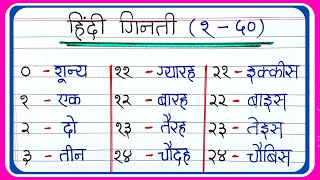 हिंदी गिनती (१ - ५०)
० - शून्य ११ - ग्यारह २१ - इक्कीस
१ - एक १२ - बारह २२ - बाइस
२ - दो १३ - तैरह २३ - तेइस
३ - तीन १४ - चौदह २४ - चौबिस